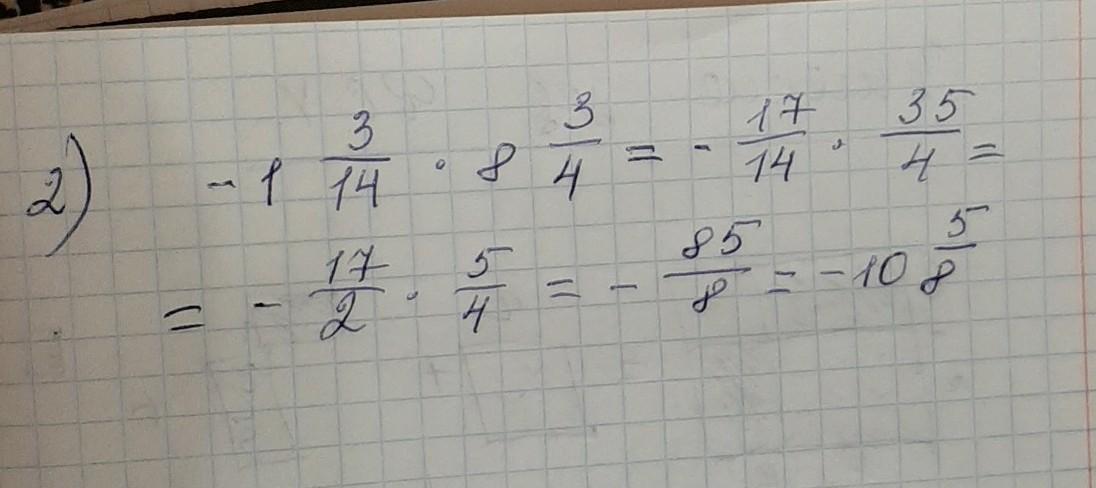 2) - 1 3/14 · 8 3/4 = - 17/14 · 35/4 =
= - 17/2 · 5/4 = - 85/8 = - 10 5/8